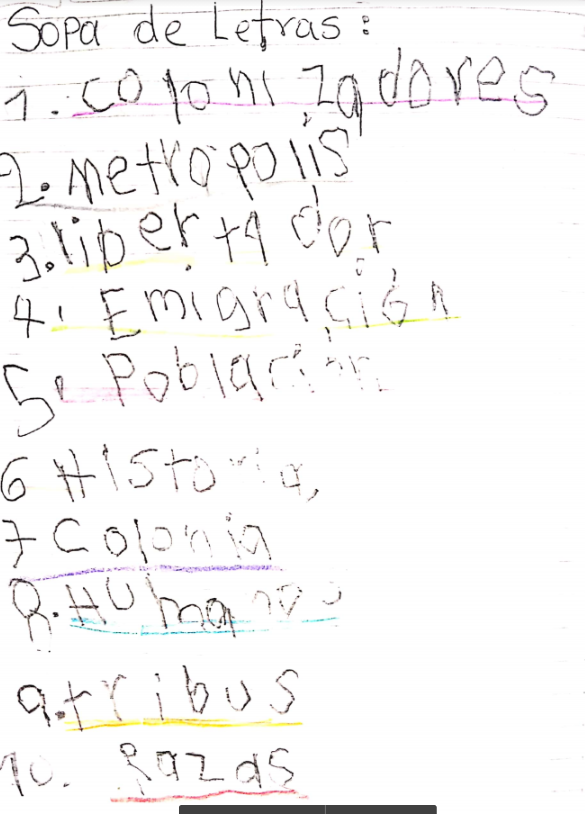 Sopa de Letras:
1. colonizadores
2. metropolis
3. libertador
4. Emigración
5. Población
6 Historia,
7 Colonia
8. Humanos
9. tribus
10. Razas